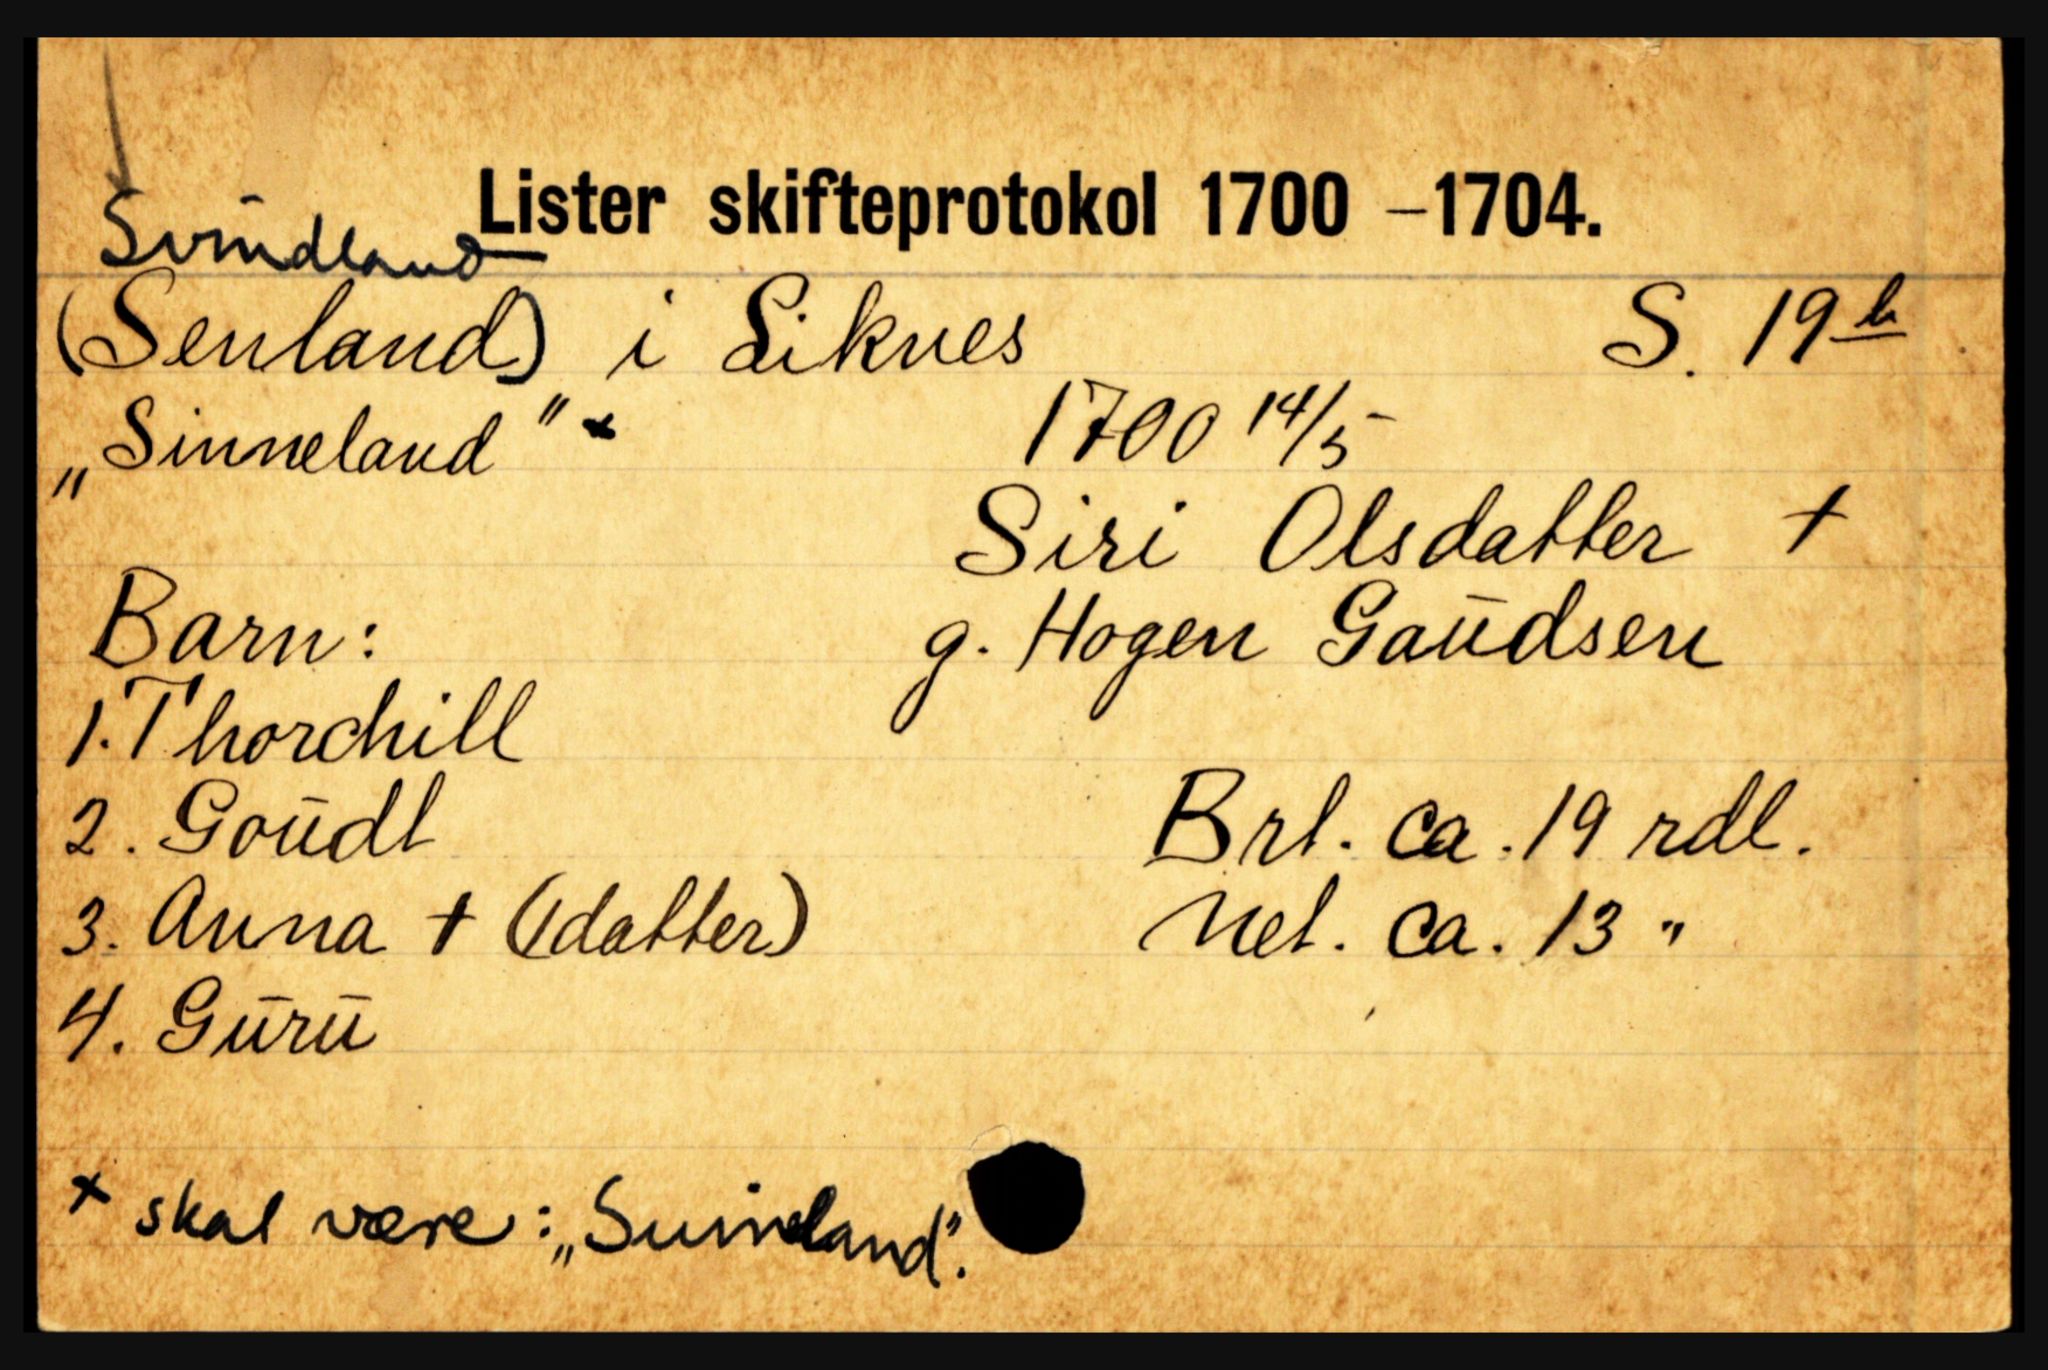 Lister skifteprotokol 1700 –1704.
Svindland
(Senland) i Liknes S. 19b
„Sinneland" x 1700 14/5
Siri Olsdatter †
Barn: g. Hogen Gaūdsen
1. Thorchill
2. Goūdl Brt. ca. 19 rdl.
3. Anna † (1 datter) Net. ca. 13 "
4. Gūrū
x skal være: „Suineland".